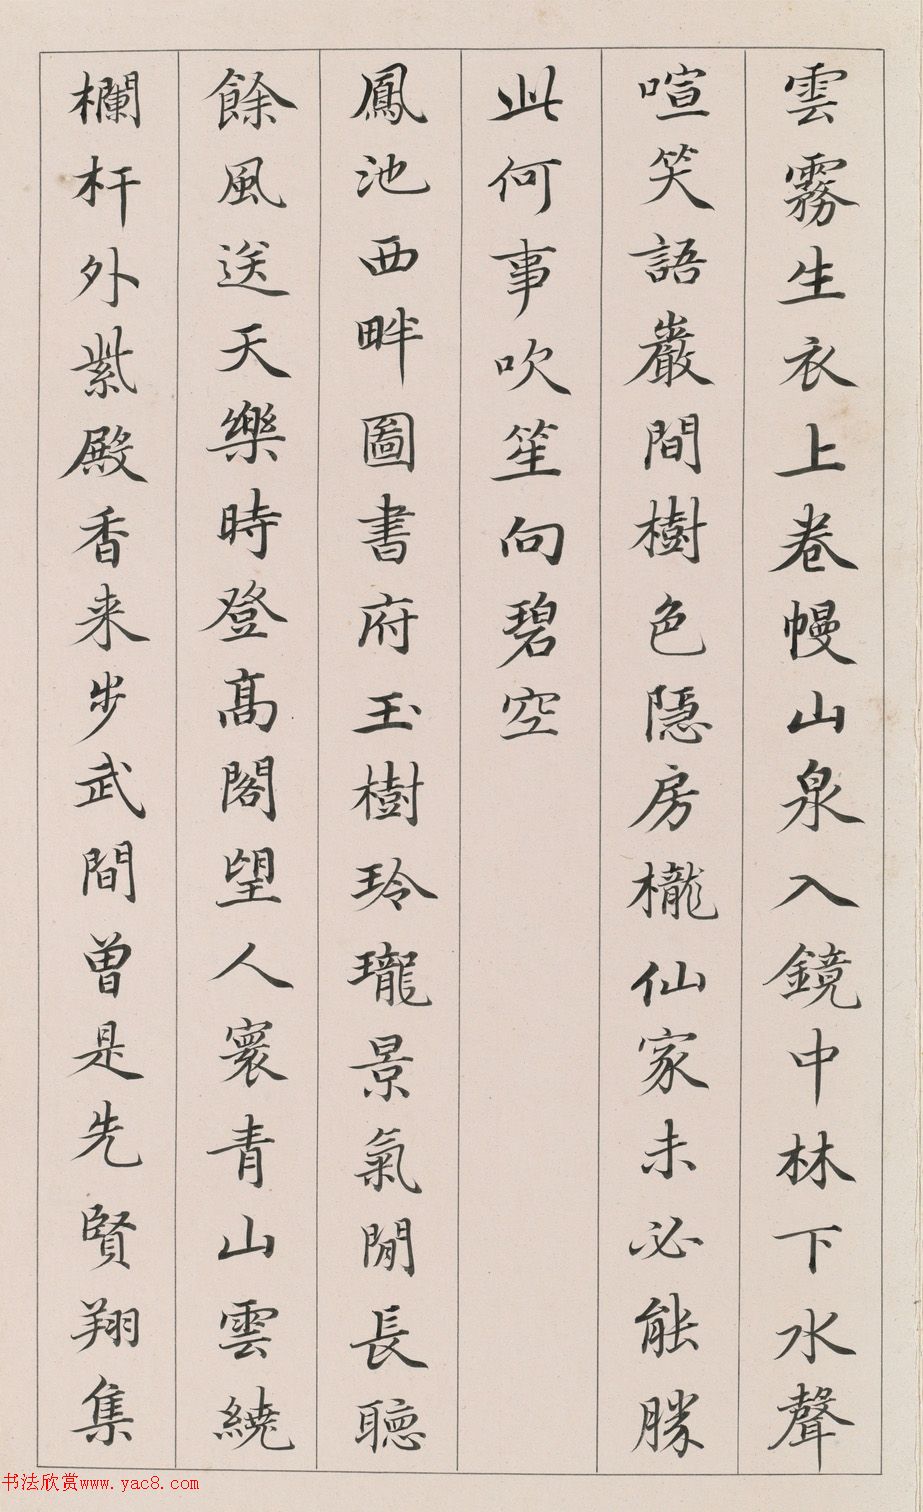 雲霧生衣上卷幔山泉入鏡中林下水聲
喧笑語巖間樹色隱房櫳仙家未必能勝
此何事吹笙向碧空
鳳池西畔圖書府玉樹玲瓏景氣閒長聽
餘風送天樂時登高閣望人寰青山雲繞
欄杆外紫殿香来步武間曾是先賢翔集
书法欣赏www.yac8.com